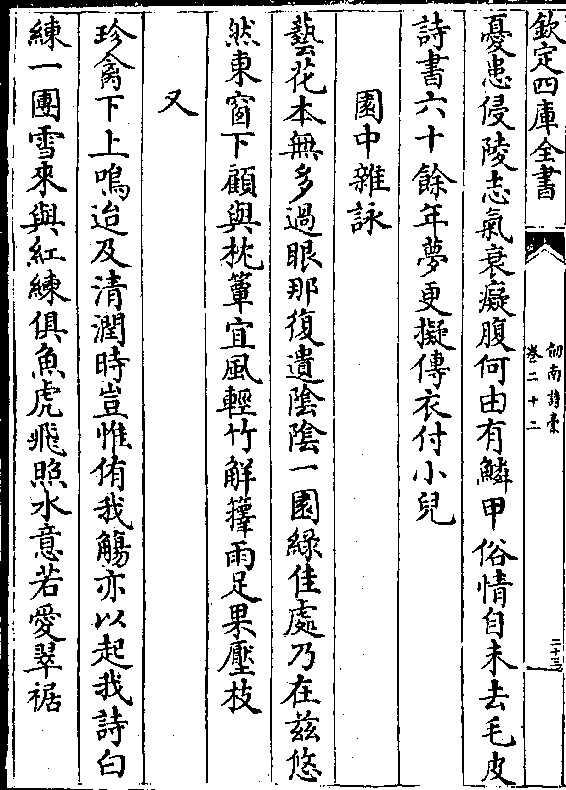 欽定四庫全書
劒南詩槀
卷二十二
二十三
憂患侵陵志氣衰癡腹何由有鱗甲俗情自未去毛皮
詩書六十餘年夢更擬傳衣付小兒
園中雜詠
藝花本無多過眼那復遺陰陰一園綠佳處乃在兹悠
然東窗下顧與枕簟宜風輕竹解籜雨足果壓枝
又
珍禽下上鳴迨及清潤時豈惟侑我觴亦以起我詩白
練一團雪來與紅練俱魚虎飛照水意若愛翠裾